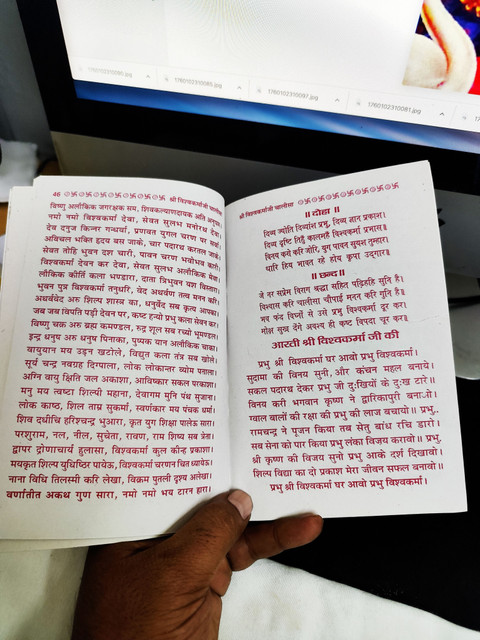 1760102310095.jpg
1760102310089.jpg
1760102310097.jpg
1760102310081.jpg
46 श्री विश्वकर्मा चालीसा
विष्णु अलौकिक जगरक्षक सम, शिवकल्याणदायक अति अनुपम।
नमो नमो विश्वकर्मा देवा, सेवत सुलभ मनोरथ देवा।
देव दनुज किन्नर गन्धर्वा, प्रणवत युगल चरण पर सर्वा।
अविचल भक्ति हृदय बस जाके, चार पदारथ करतल जाके।
सेवत तोहि भुवन दश चारी, पावन चरण भवोभव कारी।
विश्वकर्मा देवन कर देवा, सेवत सुलभ अलौकिक मेवा।
लौकिक कीर्ति कला भण्डारा, दाता त्रिभुवन यश विस्तारा।
भुवन पुत्र विश्वकर्मा तनुधरि, वेद अथर्वण तत्व मनन करि।
अथर्ववेद अरु शिल्प शास्त्र का, धनुर्वेद सब कृत्य आपका।
जब जब विपति पड़ी देवन पर, कष्ट हन्यो प्रभु कला सेवन कर।
विष्णु चक्र अरु ब्रह्म कमण्डल, रुद्र शूल सब रच्यो भूमण्डल।
इन्द्र धनुष अरु धनुष पिनाका, पुष्पक यान अलौकिक चाका।
वायुयान मय उड़न खटोले, विद्युत कला तंत्र सब खोले।
सूर्य चन्द्र नवग्रह दिग्पाला, लोक लोकान्तर व्योम पताला।
अग्नि वायु क्षिति जल अकाशा, आविष्कार सकल परकाशा।
मनु मय त्वष्टा शिल्पी महाना, देवागम मुनि पंथ सुजाना।
लोक काष्ठ, शिल ताम्र सुकर्मा, स्वर्णकार मय पंचक धर्मा।
शिव दधीचि हरिश्चन्द्र भुआरा, कृत युग शिक्षा पालेऊ सारा।
परशुराम, नल, नील, सुचेता, रावण, राम शिष्य सब त्रेता।
द्वापर द्रोणाचार्य हुलासा, विश्वकर्मा कुल कीन्ह प्रकाशा।
मयकृत शिल्प युधिष्ठिर पायेऊ, विश्वकर्मा चरणन चित ध्यायेऊ।
नाना विधि तिलस्मी करि लेखा, विक्रम पुतली दृश्य अलेखा।
वर्णातीत अकथ गुण सारा, नमो नमो भय टारन हारा।
श्री विश्वकर्मा चालीसा
॥ दोहा ॥
दिव्य ज्योति दिव्यांश प्रभु, दिव्य ज्ञान प्रकाश।
दिव्य दृष्टि तिहुँ कालमहँ विश्वकर्मा प्रभास॥
विनय करों करि जोरि, युग पावन सुयश तुम्हार।
धारि हिय भावत रहे होय कृपा उद्गार॥
॥ छन्द ॥
जे नर सप्रेम विराग श्रद्धा सहित पढ़िहहि सुनि है।
विश्वास करि चालीसा चौपाई मनन करि गुनि है॥
भव फंद विघ्नों से उसे प्रभु विश्वकर्मा दूर कर।
मोक्ष सुख देंगे अवश्य ही कष्ट विपदा चूर कर॥
आरती श्री विश्वकर्मा जी की
प्रभु श्री विश्वकर्मा घर आवो प्रभु विश्वकर्मा।
सुदामा की विनय सुनी, और कंचन महल बनाये।
सकल पदारथ देकर प्रभु जी दुःखियों के दुःख टारे॥
विनय करी भगवान कृष्ण ने द्वारिकापुरी बनाओ।
ग्वाल बालों की रक्षा की प्रभु की लाज बचायो॥ प्रभु..
रामचन्द्र ने पूजन किया तब सेतु बांध रचि डारो।
सब सेना को पार किया प्रभु लंका विजय करावो॥ प्रभु.
श्री कृष्ण की विजय सुनो प्रभु आके दर्श दिखावो।
शिल्प विद्या का दो प्रकाश मेरा जीवन सफल बनावो॥
प्रभु श्री विश्वकर्मा घर आवो प्रभु विश्वकर्मा।